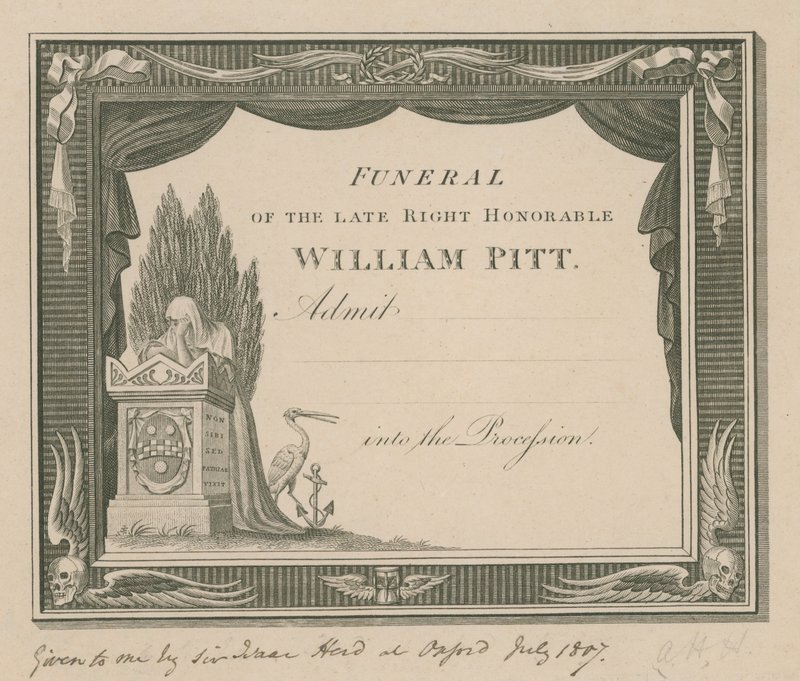 FUNERAL
OF THE LATE RIGHT HONORABLE
WILLIAM PITT.
Admit
into the Procession.
NON
SIBI
SED
PATRIAE
VIXIT
Given to me by Sir Isaac Herd at Oxford July 1807.
a. H. H.